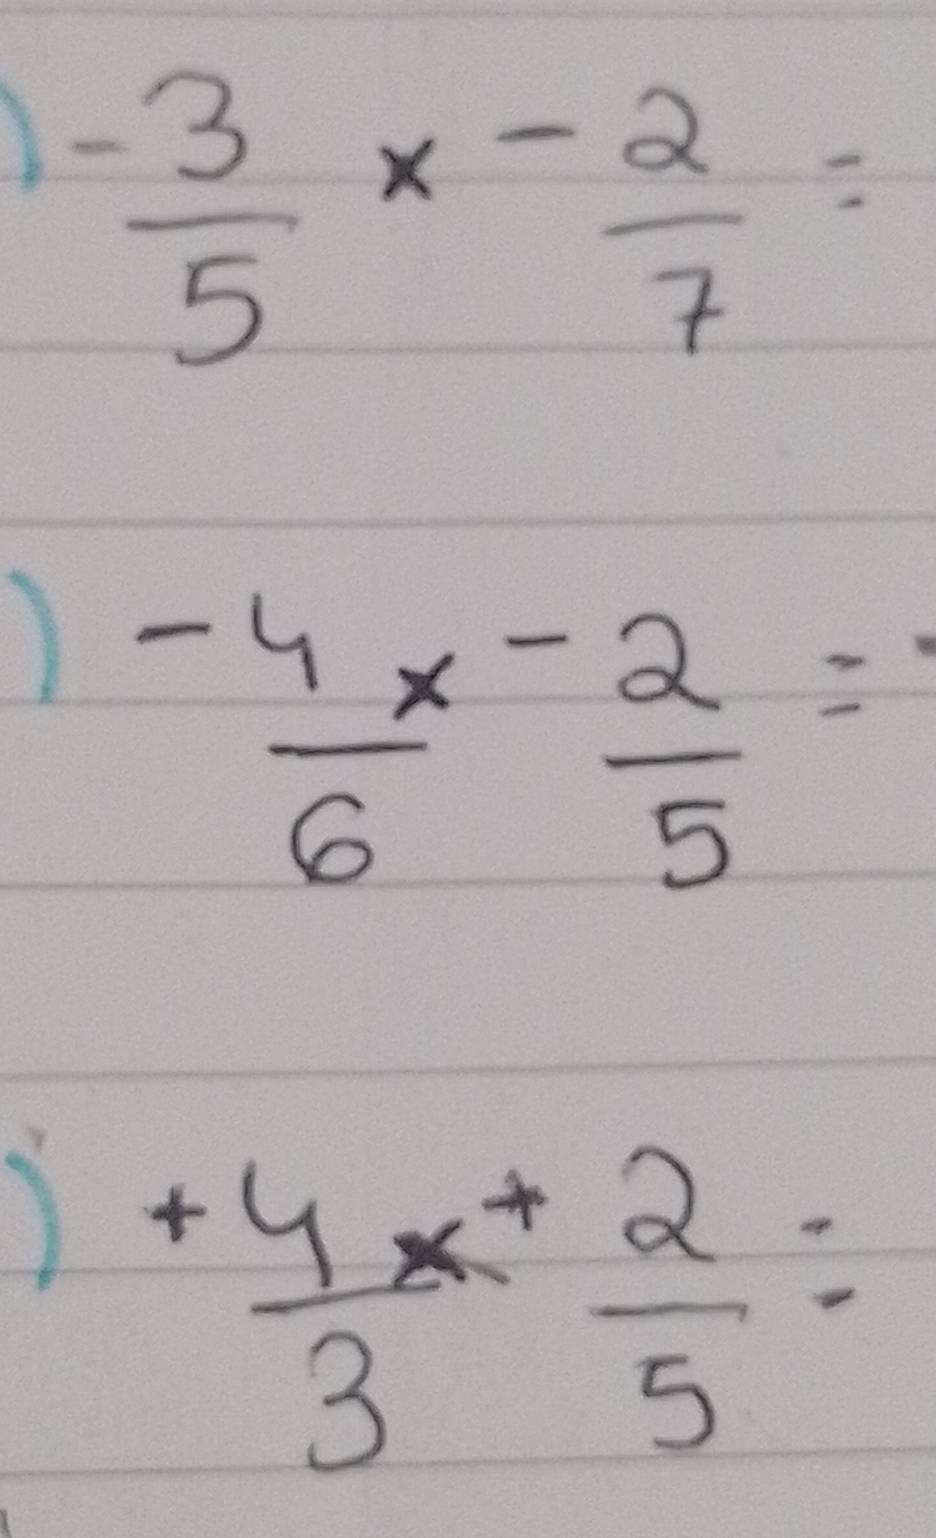 ) -3/5 × -2/7 =
) -4/6 × -2/5 = -
) +4/3 × +2/5 =